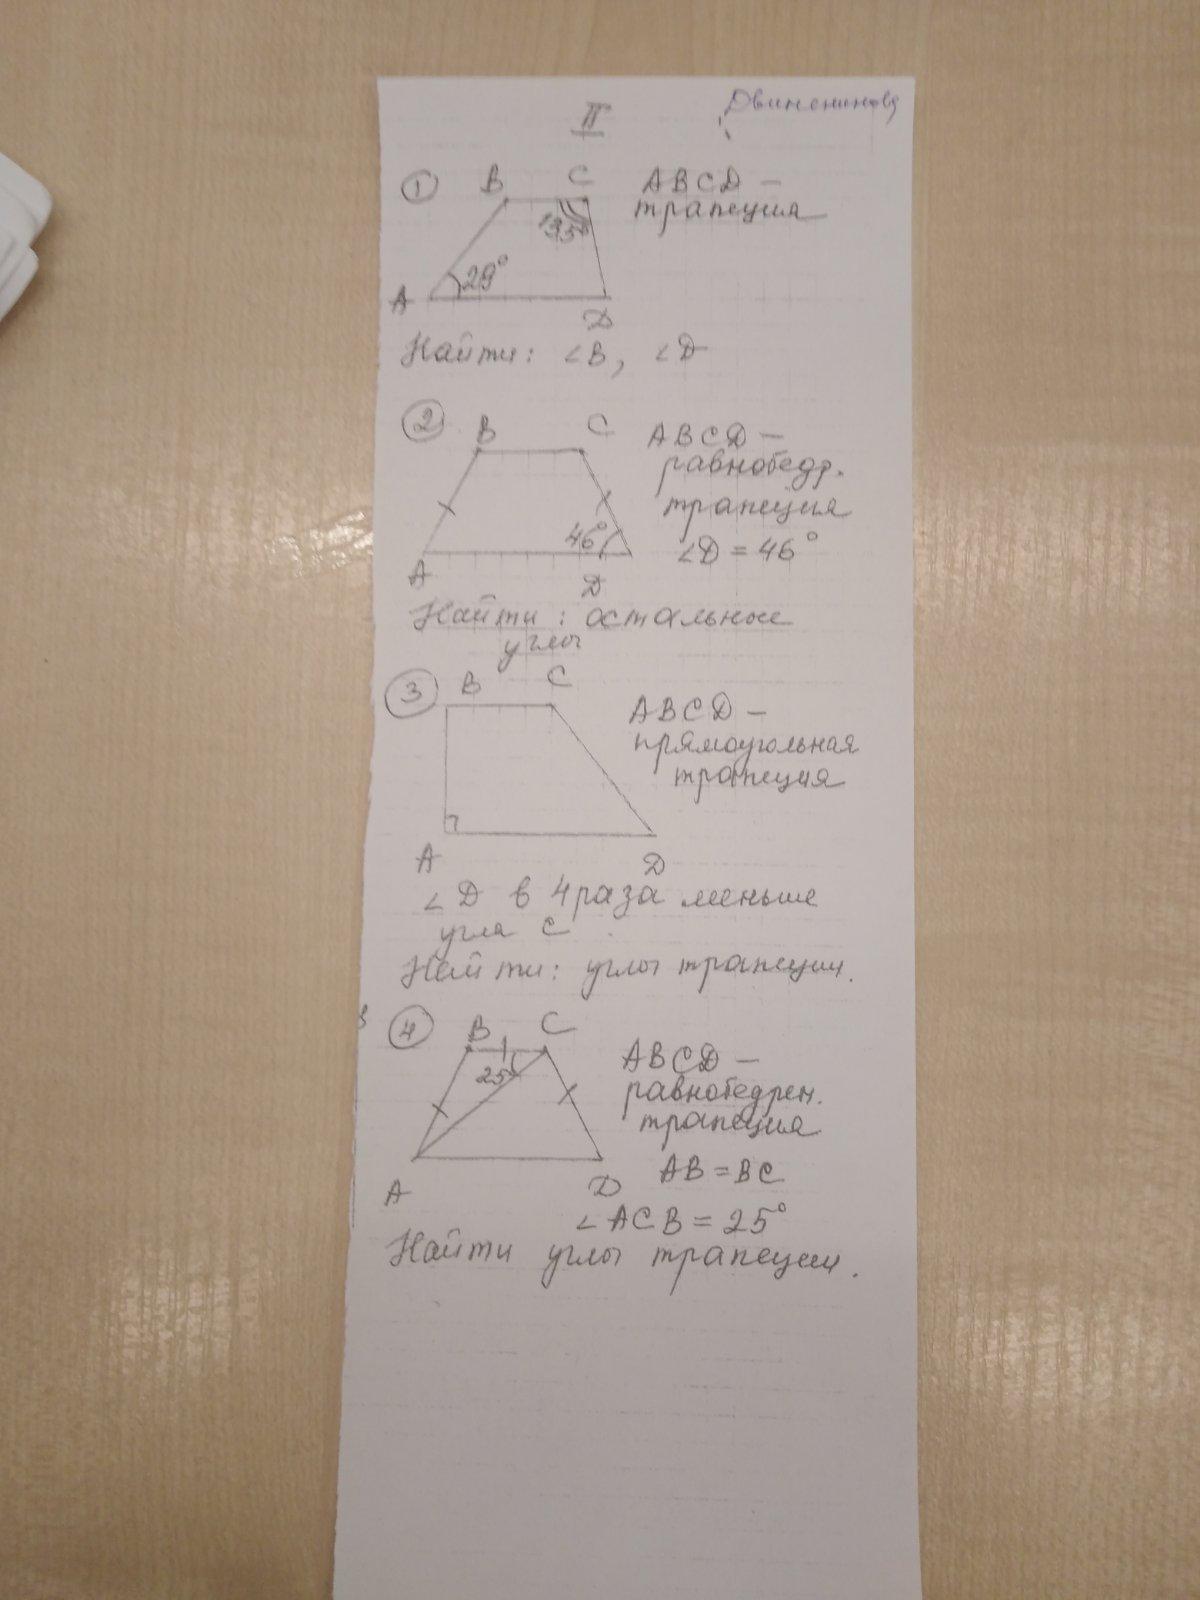 II
① B C ABCD —
трапеция
135°
29°
A D
Найти: ∠B, ∠D
② B C ABCD —
равнобедр.
трапеция
46° ∠D = 46°
A D
Найти: остальные
углы
③ B C
ABCD —
прямоугольная
трапеция
A D
∠D в 4 раза меньше
угла C
Найти: углы трапеции.
④ B C
25° ABCD —
равнобедрен.
трапеция
A D AB = BC
∠ACB = 25°
Найти углы трапеции.